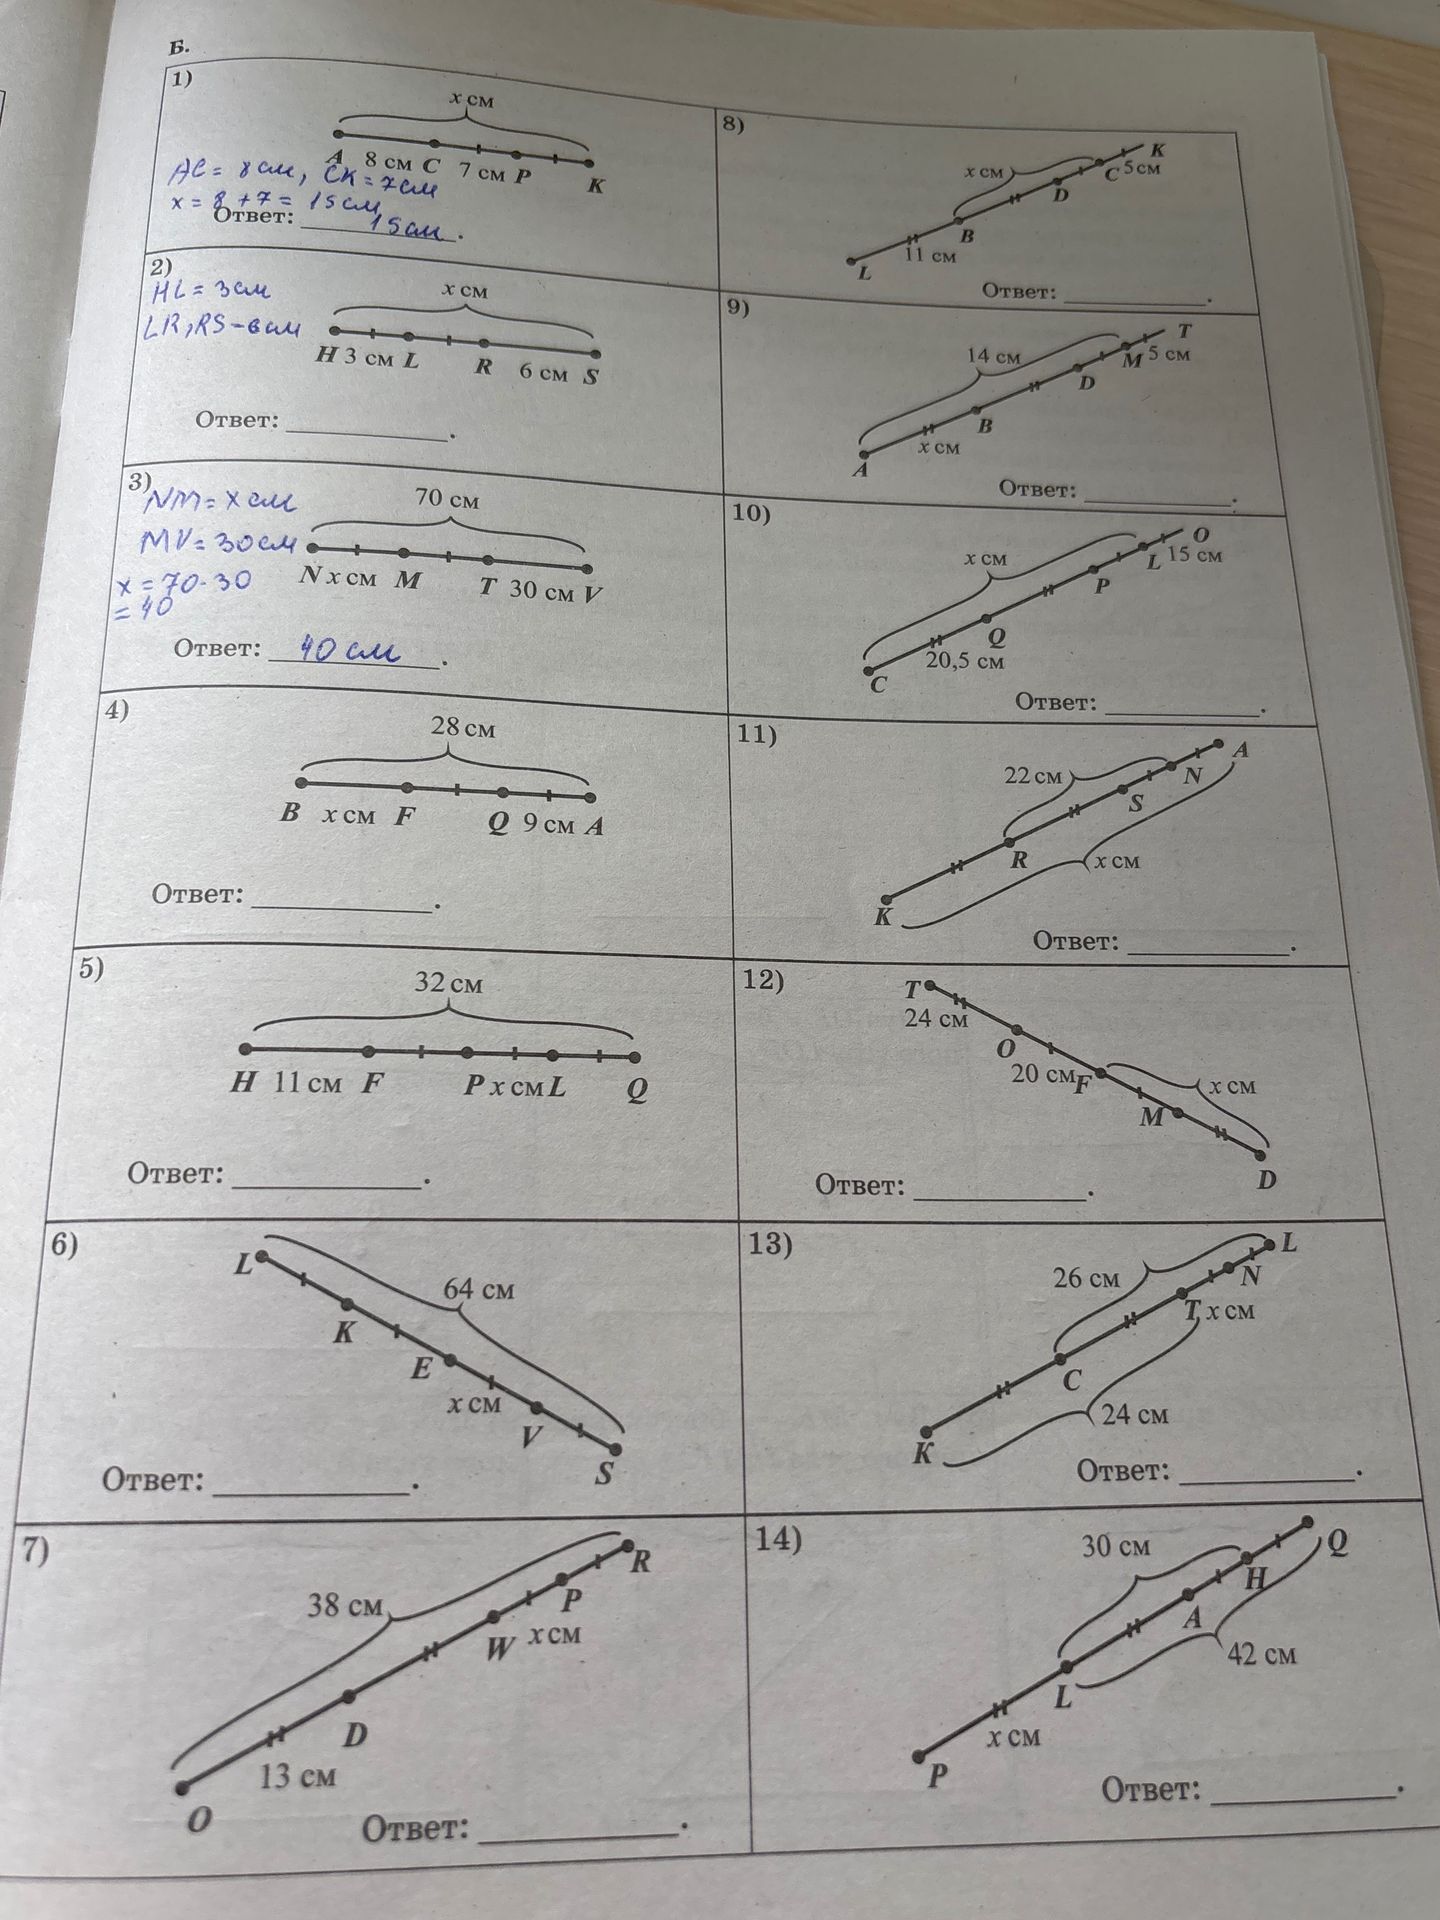 Б.
1)
x см
A 8 см C 7 см P K
AC = 8 см, CK = 7 см
x = 8 + 7 = 15 см
Ответ: 15 см.
2)
HL = 3 см
LR, RS - 6 см
x см
H 3 см L R 6 см S
Ответ: ________.
3)
NM = x см
MV = 30 см
x = 70 - 30
= 40
70 см
N x см M T 30 см V
Ответ: 40 см.
4)
28 см
B x см F Q 9 см A
Ответ: ________.
5)
32 см
H 11 см F P x см L Q
Ответ: ________.
6)
L
64 см
K
E
x см
V
S
Ответ: ________.
7)
R
38 см
P
W x см
D
13 см
O
Ответ: ________.
8)
K
x см
C 5 см
D
B
11 см
L
Ответ: ________.
9)
T
14 см
M 5 см
D
B
x см
A
Ответ: ________.
10)
O
x см
L 15 см
P
Q
20,5 см
C
Ответ: ________.
11)
A
22 см
N
S
R
x см
K
Ответ: ________.
12)
T
24 см
O
20 см F
x см
M
D
Ответ: ________.
13)
L
26 см
N
T x см
C
24 см
K
Ответ: ________.
14)
30 см
Q
H
A
42 см
L
x см
P
Ответ: ________.